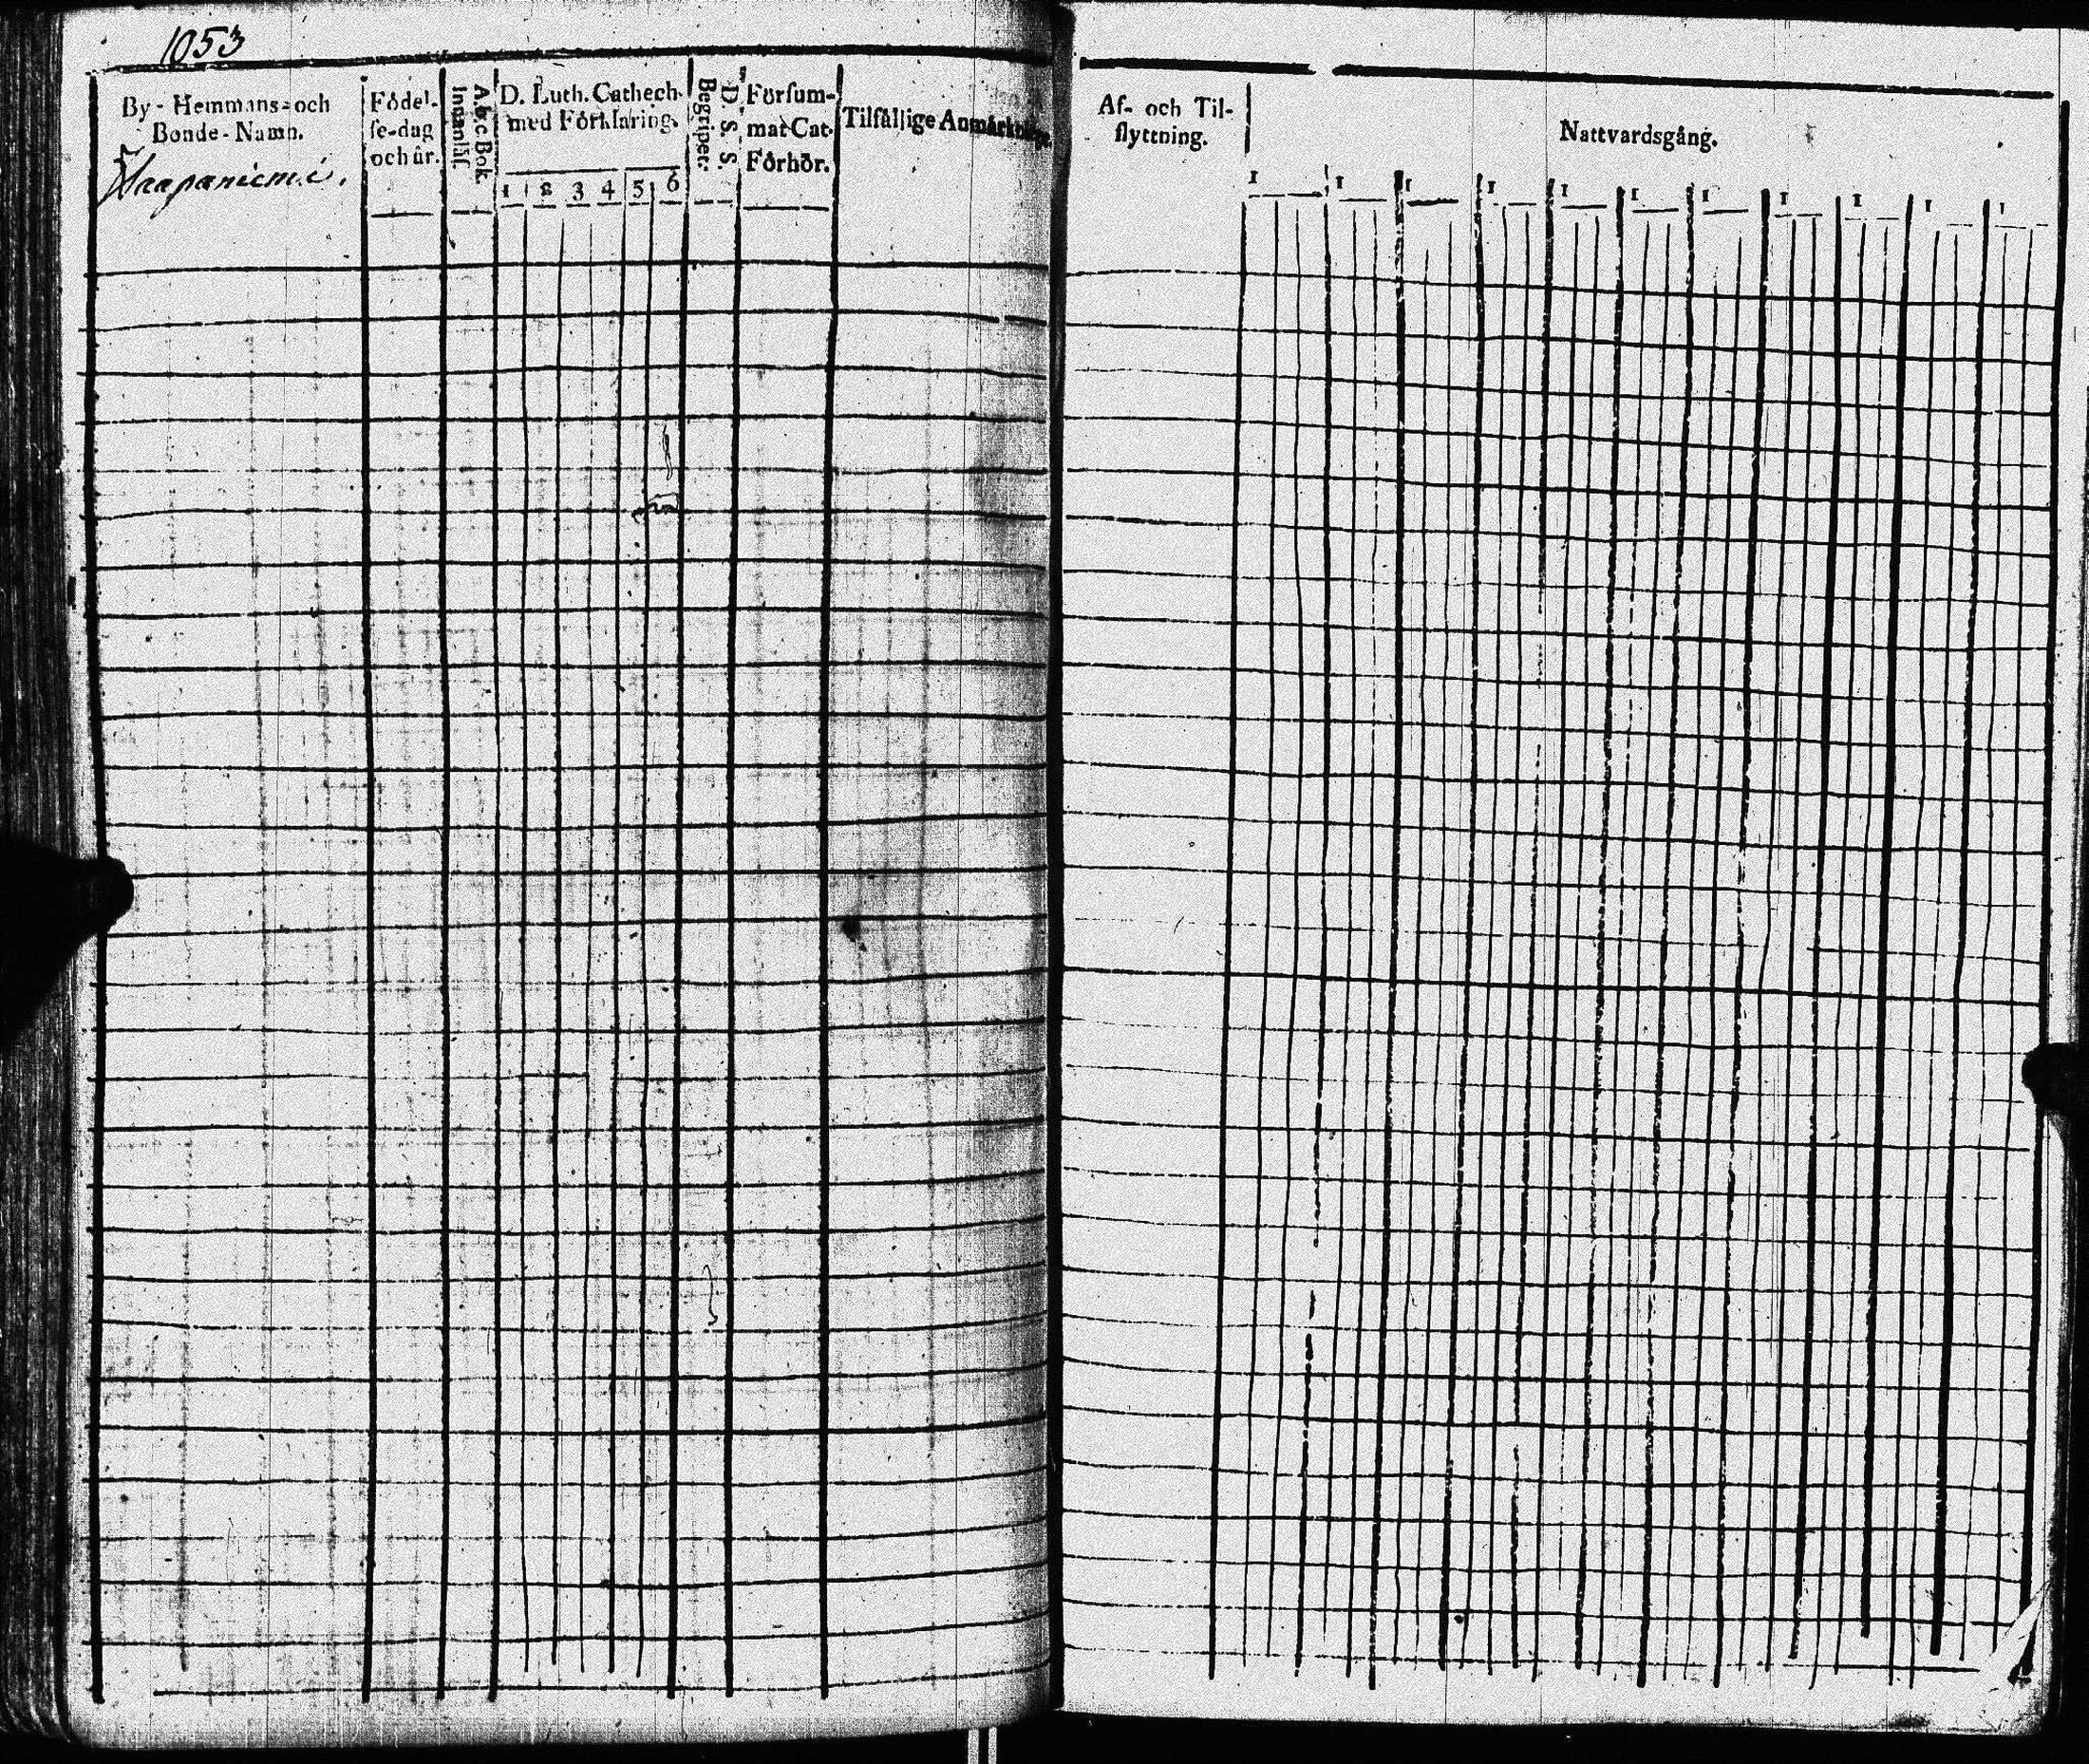 1053
By- Hemmans- och
Bonde-Namn.
Haapaniemi.
Födel-
se-dag
och år.
A.b.c.Bok.
Innanläf.
D. Luth. Cathech.
med Förklaring.
1 2 3 4 5 6
D. S. S.
Begriper.
Försum-
mat Cat.
Förhör.
Tilfällige Anmärkningar
Af- och Til-
flyttning.
Nattvardsgång.
1 1 1 1 1 1 1 1 1 1 1